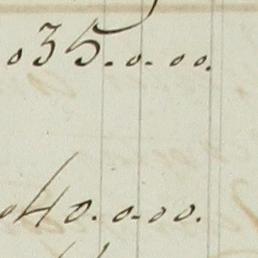 035.0.00.
040.0.00.